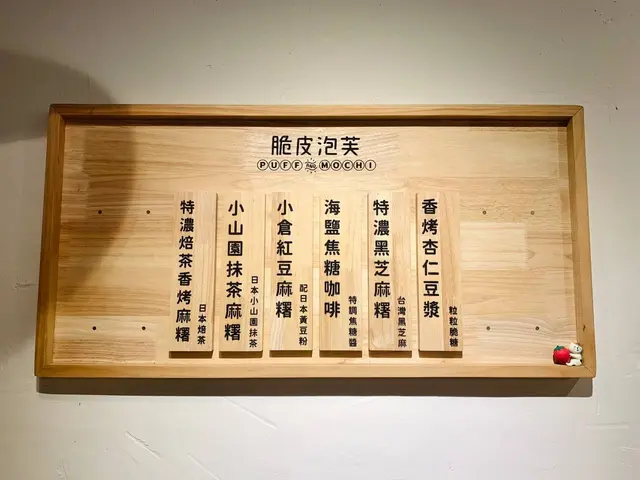 脆皮泡芙
PUFF MOCHI
香烤杏仁豆漿
粒粒脆糖
特濃黑芝麻糬
台灣黑芝麻
海鹽焦糖咖啡
特調焦糖醬
小倉紅豆麻糬
配日本黃豆粉
小山園抹茶麻糬
日本小山園抹茶
特濃焙茶香烤麻糬
日本焙茶